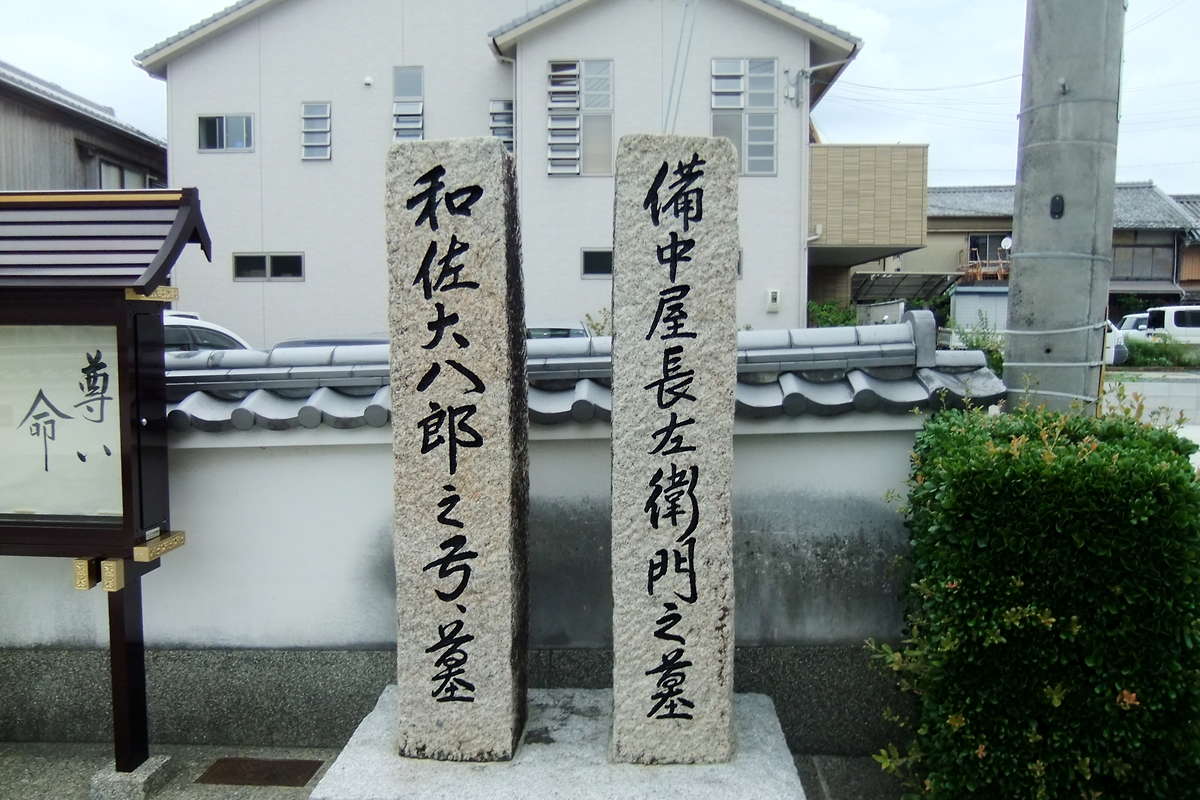 備中屋長左衛門之墓
和佐大八郎之弓、墓
尊い
命